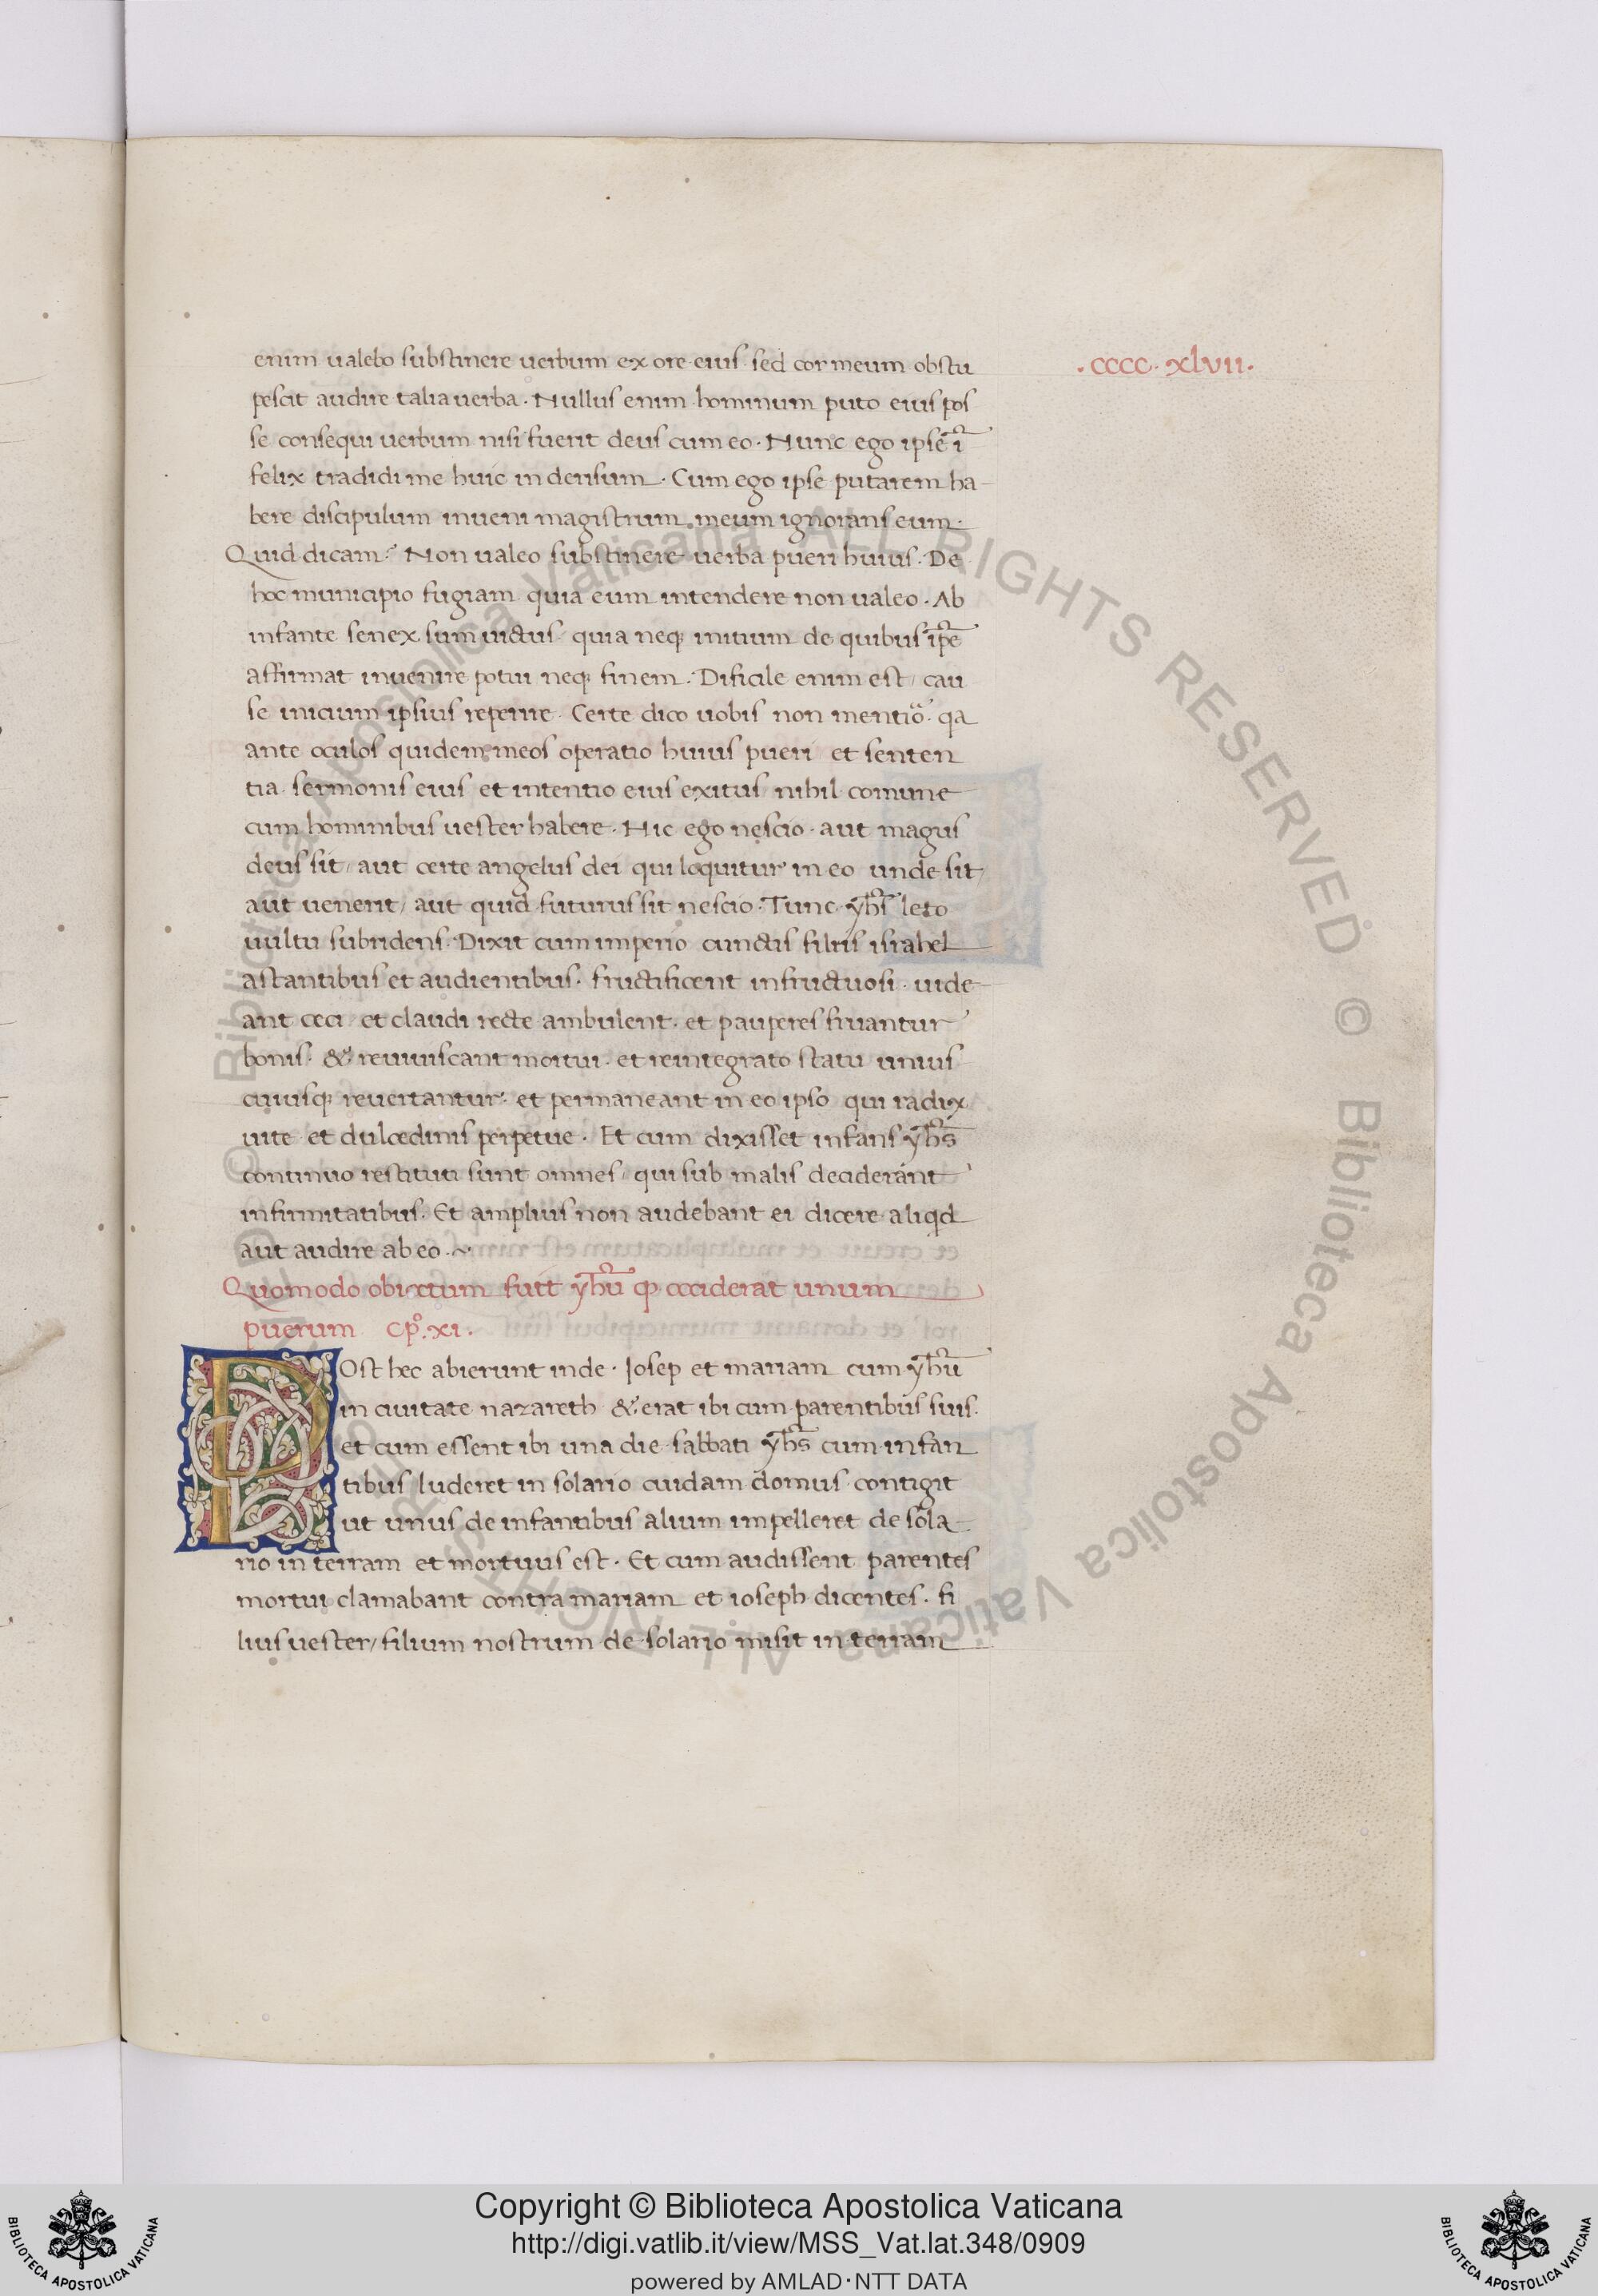 enim ualebo substinere uerbum ex ore eius. sed cor meum obstu
pescit audire talia uerba. Nullus enim hominum puto eius pos
se consequi uerbum nisi fuerit deus cum eo. Nunc ego ipse ī
felix tradidi me huic in derisum. Cum ego ipse putarem ha-
bere discipulum inueni magistrum meum ignorans eum.
Quid dicam? Non ualeo substinere uerba pueri huius. De
hoc municipio fugiam quia eum intendere non ualeo. Ab
infante senex sum uictus/ quia neqꝫ initium de quibus ip̄e
affirmat inuenire potui neqꝫ finem. Dificile enim est/ cau
se inicium ipsius reperire. Certe dico uobis non mentio᷒. qa
ante oculos quidem meos operatio huius pueri et senten
tia sermonis eius et intentio eius exitus/ nihil comune
cum hominibus uester habere. Hic ego nescio. aut magus
deus sit/ aut certe angelus dei qui loquitur in eo unde sit
aut uenerit/ aut quid futurus sit nescio. Tunc yh̄s leto
uultu subridens. Dixit cum imperio cunctis filiis israhel
astantibus et audientibus. fructificent infructuosi. uide-
ant ceci et claudi recte ambulent. et pauperes fruantur
bonis. & reuiuiscant mortui. et reintegrato statu unius
cuiusqꝫ reuertantur. et permaneant in eo ipso qui radix
uite et dulcedinis perpetue. Et cum dixisset infans yh̄s
continuo restituti sunt omnes/ qui sub malis deciderant
infirmitatibus. Et amplius non audebant ei dicere aliqd
aut audire ab eo. ~
Quomodo obiectum fuit yh̄u ꝙ occiderat unum
puerum cp̊. xi.
.CCCC. xlvii.
POst hec abierunt inde. Josep et mariam cum yh̄u
in ciuitate nazareth & erat ibi cum parentibus suis.
et cum essent ibi una die sabbati yh̄s cum infan
tibus luderet in solario cuidam domus. contigit
ut unus de infantibus alium impelleret de sola-
rio in terram et mortuus est. Et cum audissent parentes
mortui clamabant contra mariam et ioseph dicentes. fi
lius uester/ filium nostrum de solario misit in terram
© Biblioteca Apostolica Vaticana ALL RIGHTS RESERVED
© Biblioteca Apostolica Vaticana ALL RIGHTS RESERVED
Copyright © Biblioteca Apostolica Vaticana
http://digi.vatlib.it/view/MSS_Vat.lat.348/0909
powered by AMLAD·NTT DATA
BIBLIOTECA APOSTOLICA VATICANA
BIBLIOTECA APOSTOLICA VATICANA